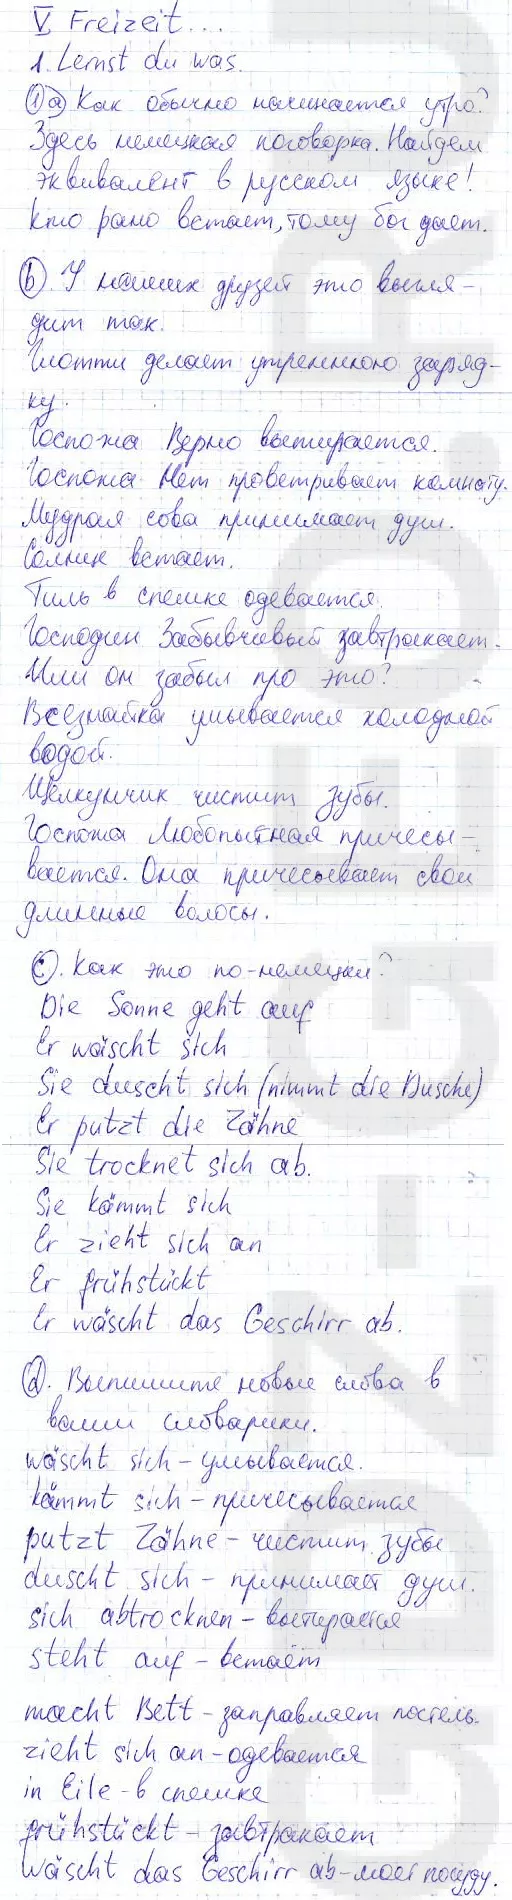 V. Freizeit...
1. Lernst du was.
1 a) Как обычно начинается утро?
Здесь немецкая поговорка. Найдем
эквивалент в русском языке!
Кто рано встает, тому бог дает.
b). У наших друзей это выгля-
дит так.
делает утреннюю заряд-
ку.
Госпожа Верно вытирается.
Госпожа Нет проветривает комнату.
Мудрая сова принимает душ.
встает.
Тиль в спешке одевается.
Господин Забывчивый завтракает.
Или он забыл про это?
Всезнайка умывается холодной
водой.
Щелкунчик чистит зубы.
Госпожа Любопытная причесы-
вается. Она причесывает свои
длинные волосы.
c). Как это по-немецки?
Die Sonne geht auf
Er wäscht sich
Sie duscht sich (nimmt die Dusche)
Er putzt die Zähne
Sie trocknet sich ab.
Sie kämmt sich
Er zieht sich an
Er frühstückt
Er wäscht das Geschirr ab.
d). Выпишите новые слова в
ваши словарики.
wäscht sich - умывается.
kämmt sich - причесывается
putzt Zähne - чистит зубы
duscht sich - принимает душ.
sich abtrocknen - вытирается
steht auf - встаёт
macht Bett - заправляет постель.
zieht sich an - одевается
in Eile - в спешке
frühstückt - завтракает
wäscht das Geschirr ab - моет посуду.
GDZ-GEO.RU